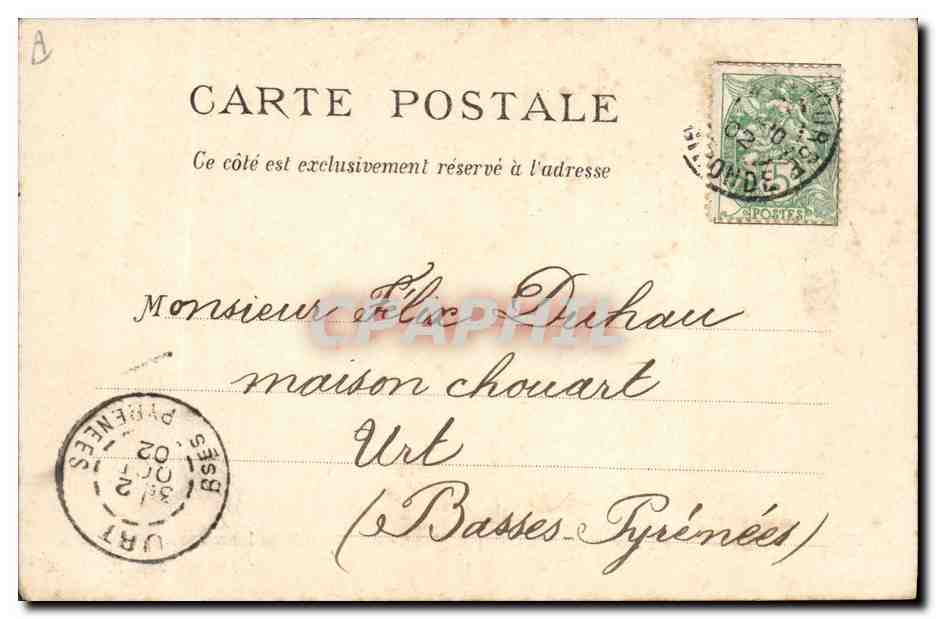 A
CARTE POSTALE
Ce côté est exclusivement réservé à l'adresse
GIRONDE
02
5
POSTES
Monsieur Félix Duhau
CPAPHIL
maison chouart
Urt
(Basses-Pyrénées)
URT
Bses PYRENEES
2
31
OCT
02